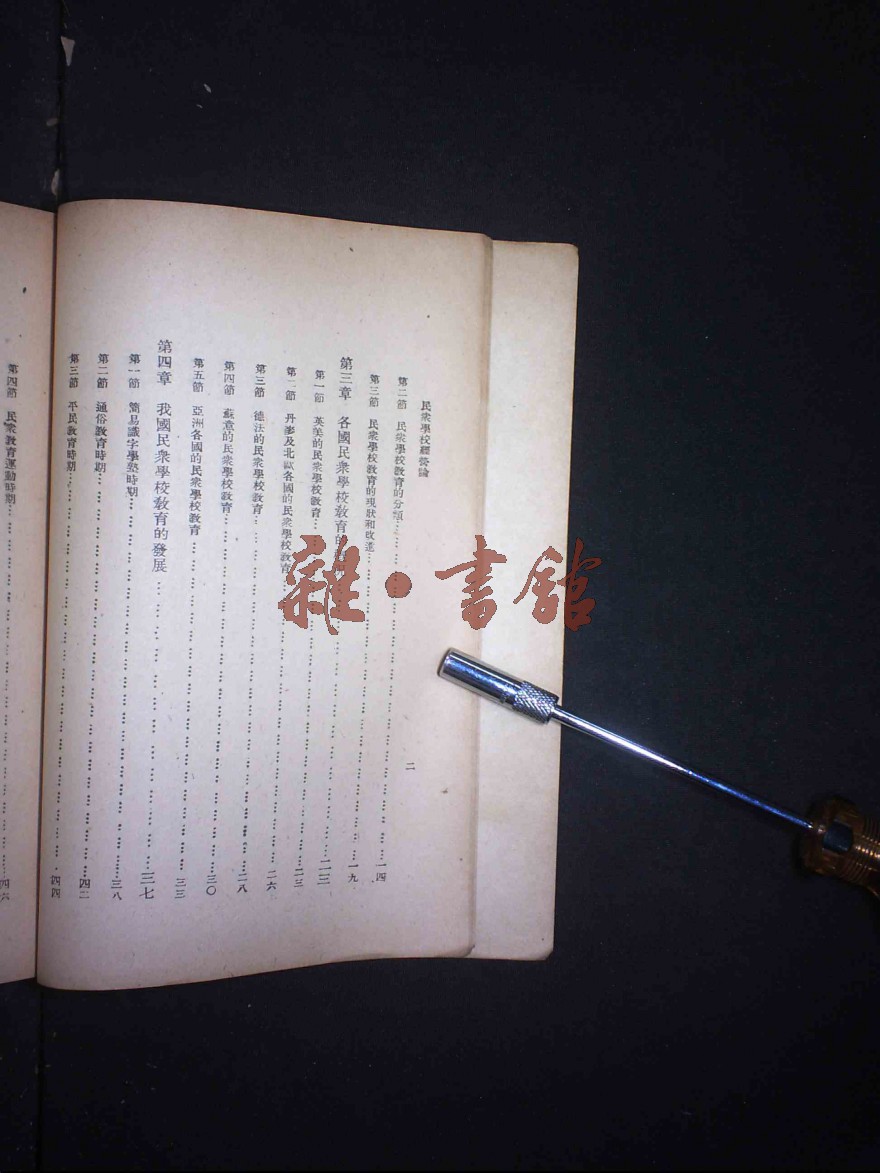 民衆學校經營論
二
第二節 民衆學校教育的分類……一四
第三節 民衆學校教育的現狀和改進……一九
第三章 各國民衆學校教育的……二三
第一節 英美的民衆學校教育……二三
第二節 丹麥及北歐各國的民衆學校教育……二六
第三節 德法的民衆學校教育……二八
第四節 蘇意的民衆學校教育……三〇
第五節 亞洲各國的民衆學校教育……三三
第四章 我國民衆學校教育的發展……三七
第一節 簡易識字學塾時期……三八
第二節 通俗教育時期……四二
第三節 平民教育時期……四四
第四節 民衆教育運動時期……四六
雜·書館